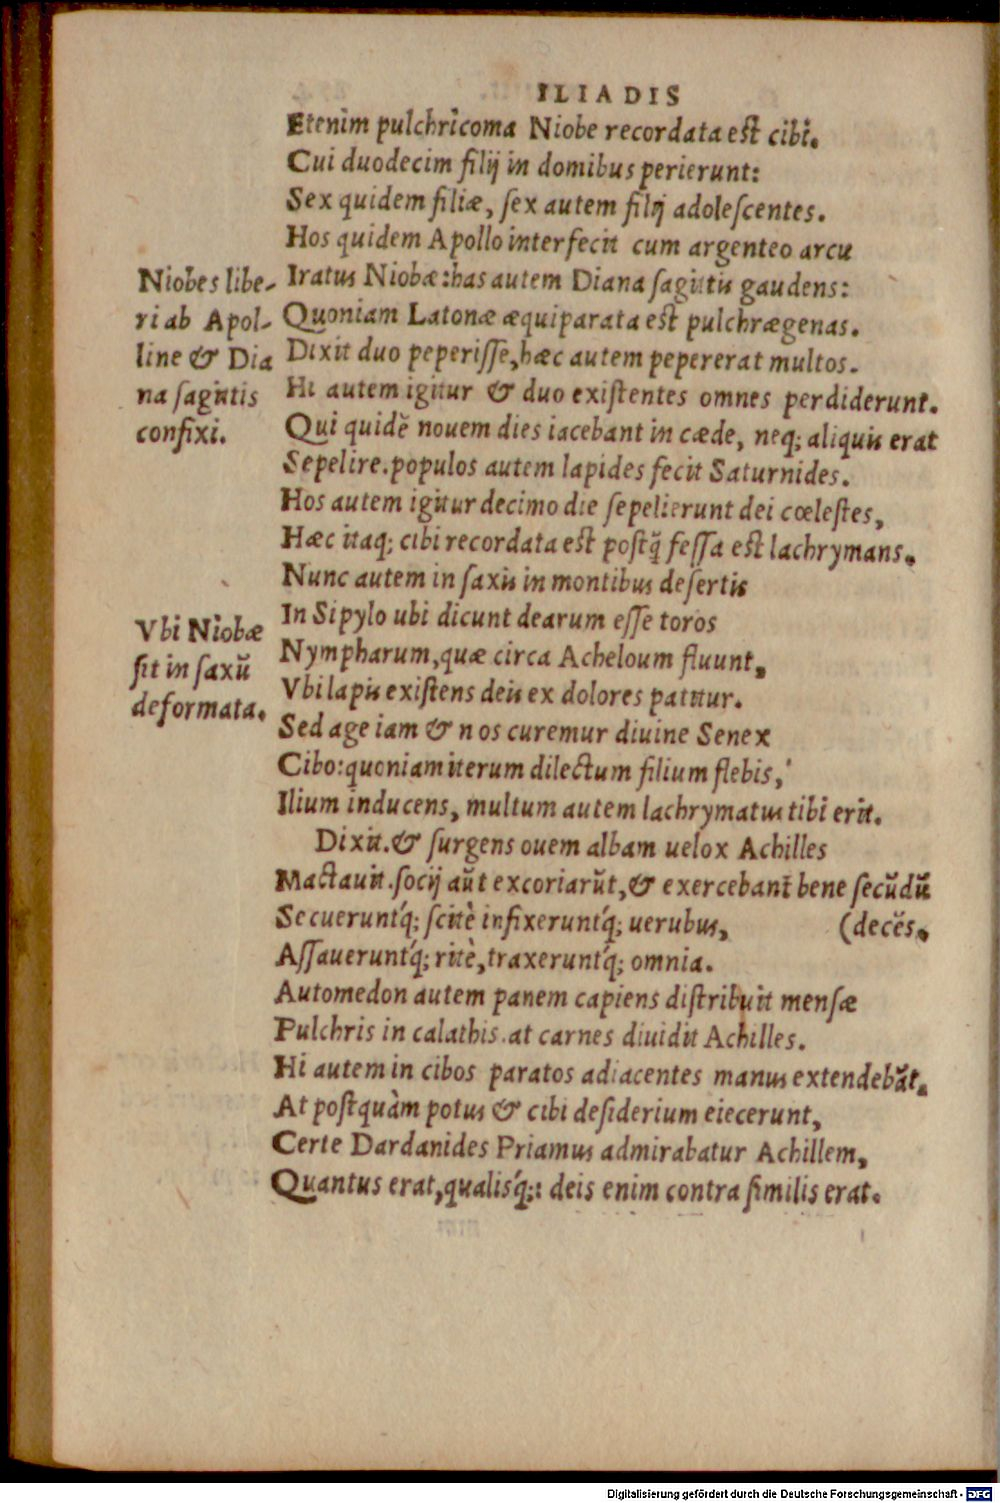 ILIADIS
Etenim pulchricoma Niobe recordata est cibi.
Cui duodecim filij in domibus perierunt:
Sex quidem filiæ, ſex autem filij adoleſcentes.
Hos quidem Apollo interfecit cum argenteo arcu
Iratus Niobæ: has autem Diana ſagittis gaudens:
Quoniam Latonæ æquiparata est pulchrægenas.
Dixit duo peperiſſe, hæc autem pepererat multos.
Hi autem igitur & duo exiſtentes omnes perdiderunt.
Qui quidẽ nouem dies iacebant in cæde, neq; aliquis erat
Sepelire. populos autem lapides fecit Saturnides.
Hos autem igitur decimo die ſepelierunt dei cœleſtes,
Hæc itaq; cibi recordata est poſtq̃ feſſa est lachrymans.
Nunc autem in ſaxis in montibus deſertis
In Sipylo ubi dicunt dearum eſſe toros
Nympharum, quæ circa Acheloum fluunt,
Vbi lapis exiſtens deis ex dolores patitur.
Sed age iam & nos curemur diuine Senex
Cibo: quoniam iterum dilectum filium flebis,
Ilium inducens, multum autem lachrymatus tibi erit.
Dixit. & ſurgens ouem albam uelox Achilles
Mactauit. ſocij aũt excoriarũt, & exercebant bene ſecũdũ
Secueruntq́; ſcitè infixeruntq́; uerubus, (decẽs.
Aſſaueruntq́; ritè, traxeruntq́; omnia.
Automedon autem panem capiens diſtribuit menſæ
Pulchris in calathis. at carnes diuidit Achilles.
Hi autem in cibos paratos adiacentes manus extendebãt.
At poſtquàm potus & cibi deſiderium eiecerunt,
Certe Dardanides Priamus admirabatur Achillem,
Quantus erat, qualisq́;: deis enim contra ſimilis erat.
Niobes libe-
ri ab Apol-
line & Dia
na ſagittis
confixi.
Vbi Niobæ
ſit in ſaxũ
deformata.
Digitalisierung gefördert durch die Deutsche Forschungsgemeinschaft - DFG